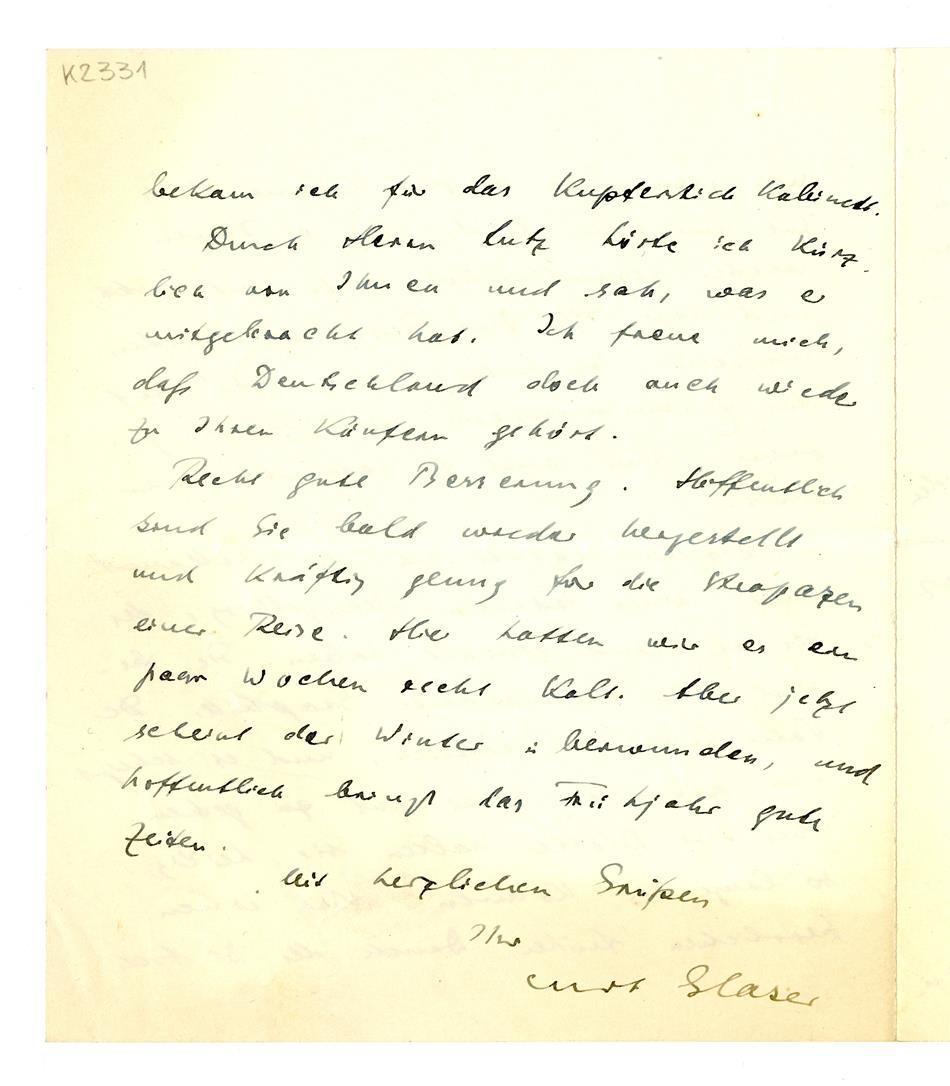 K2331
bekam ich für das Kupferstich Kabinett.
Durch Herrn Lutz hörte ich kürz-
lich von Ihnen und sah, was er
mitgebracht hat. Ich freue mich,
daß Deutschland doch auch wieder
zu Ihren Käufern gehört.
Recht gute Besserung. Hoffentlich
sind Sie bald wieder hergestellt
und kräftig genug für die Strapazen
einer Reise. Hier hatten wir es ein
paar Wochen recht kalt. Aber jetzt
scheint der Winter überwunden, und
hoffentlich bringt das Frühjahr gute
Zeiten.
Mit herzlichen Grüßen
Ihr
Curt Glaser